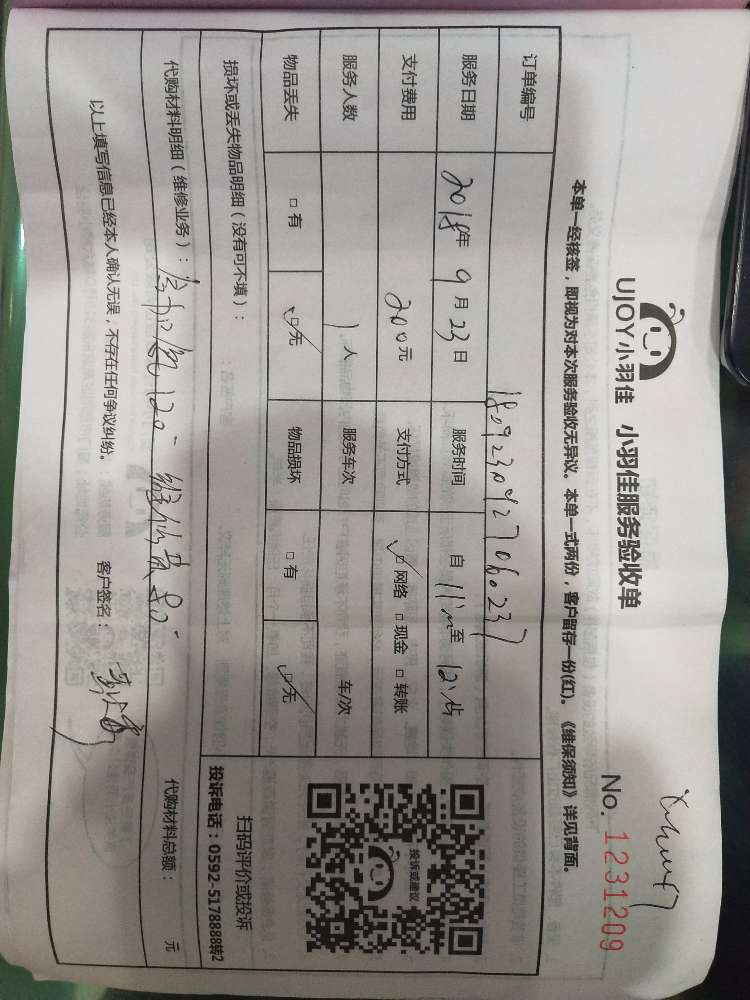 UJOY小羽佳 小羽佳服务验收单
No. 1231209
本单一经核签，即视为对本次服务验收无异议。本单一式两份，客户留存一份(红)。《维保须知》详见背面。
订单编号 1809230927060237
服务日期 2018年9月23日 服务时间 自 至
支付费用 200元 支付方式 ☑网络 □现金 □转账
服务人数 1人 服务车次 车/次
物品丢失 □有 ☑无 物品损坏 □有 ☑无
损坏或丢失物品明细（没有可不填）：
代购材料明细（维修业务）： 120- 80- 代购材料总额： 元
以上填写信息已经本人确认无误，不存在任何争议纠纷。 客户签名：
投诉或建议
扫码评价或投诉
投诉电话：0592-5178888转2